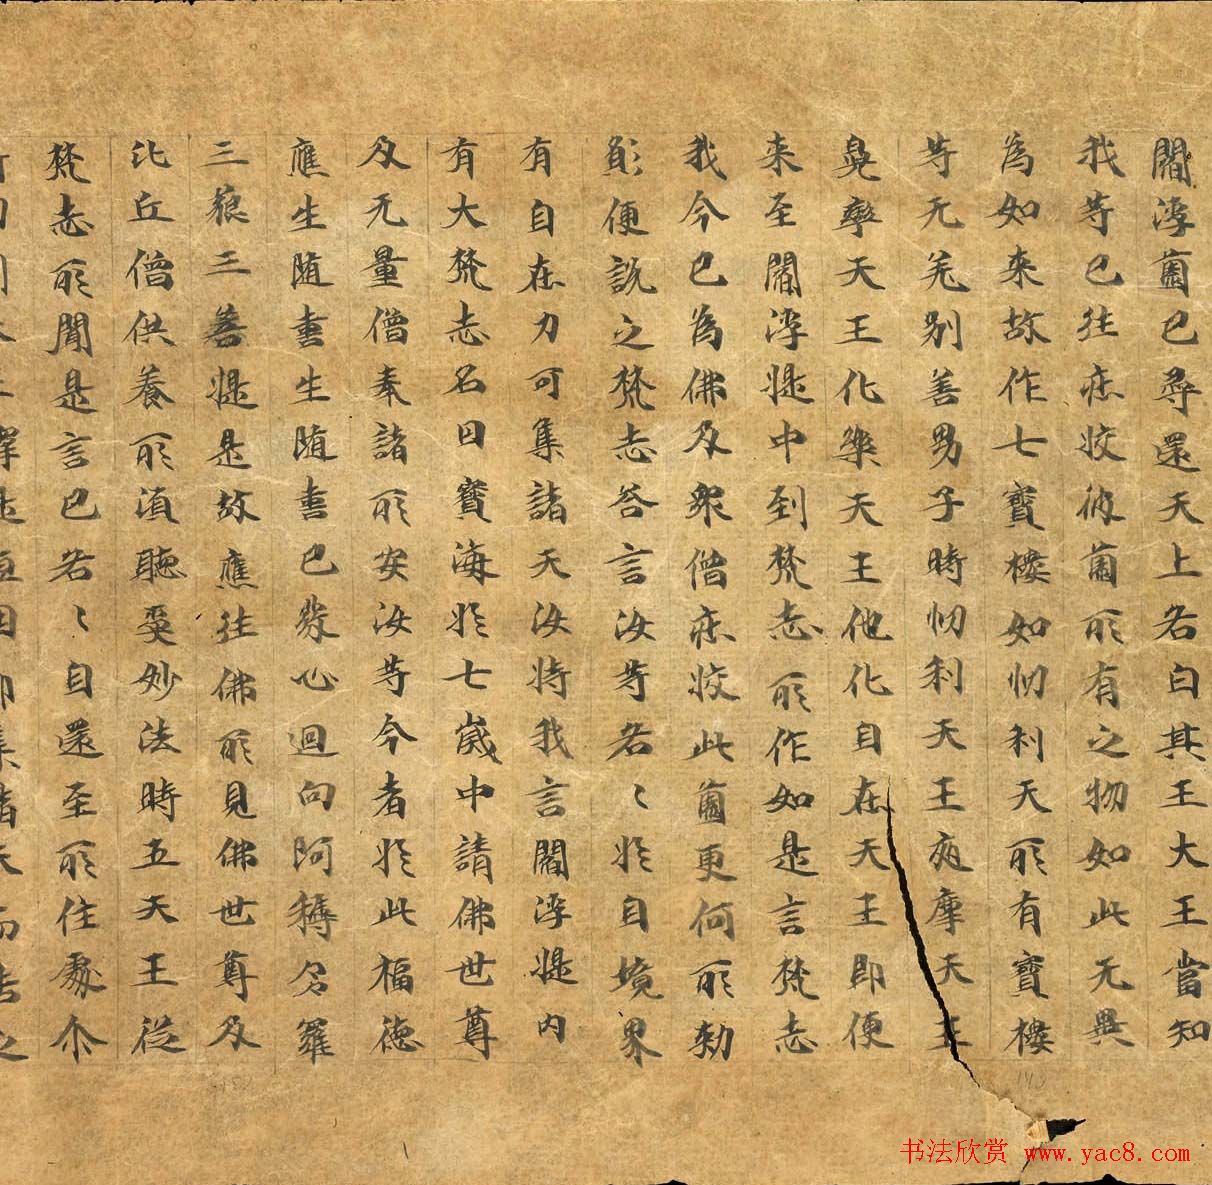 閻浮薗已尋還天上各白其王大王當知
我等已往庄挍彼薗所有之物如此无異
為如来故作七寶樓如忉利天所有寶樓
等无差别善男子時忉利天王夜摩天王
兜率天王化樂天王他化自在天王即便
来至閻浮提中到梵志所作如是言梵志
我今已為佛及衆僧庄挍此薗更何所勑
願便說之梵志荅言汝等各〻於自境界
有自在力可集諸天汝持我言閻浮提内
有大梵志名曰寶海於七歲中請佛世尊
及无量僧奉諸所安汝等今者於此福德
應生隨喜生隨喜已發心迴向阿耨多羅
三藐三菩提是故應往佛所見佛世尊及
比丘僧供養所湏聽受妙法時五天王從
梵志所聞是言已各〻自還至所住處尒
书法欣赏 www.yac8.com